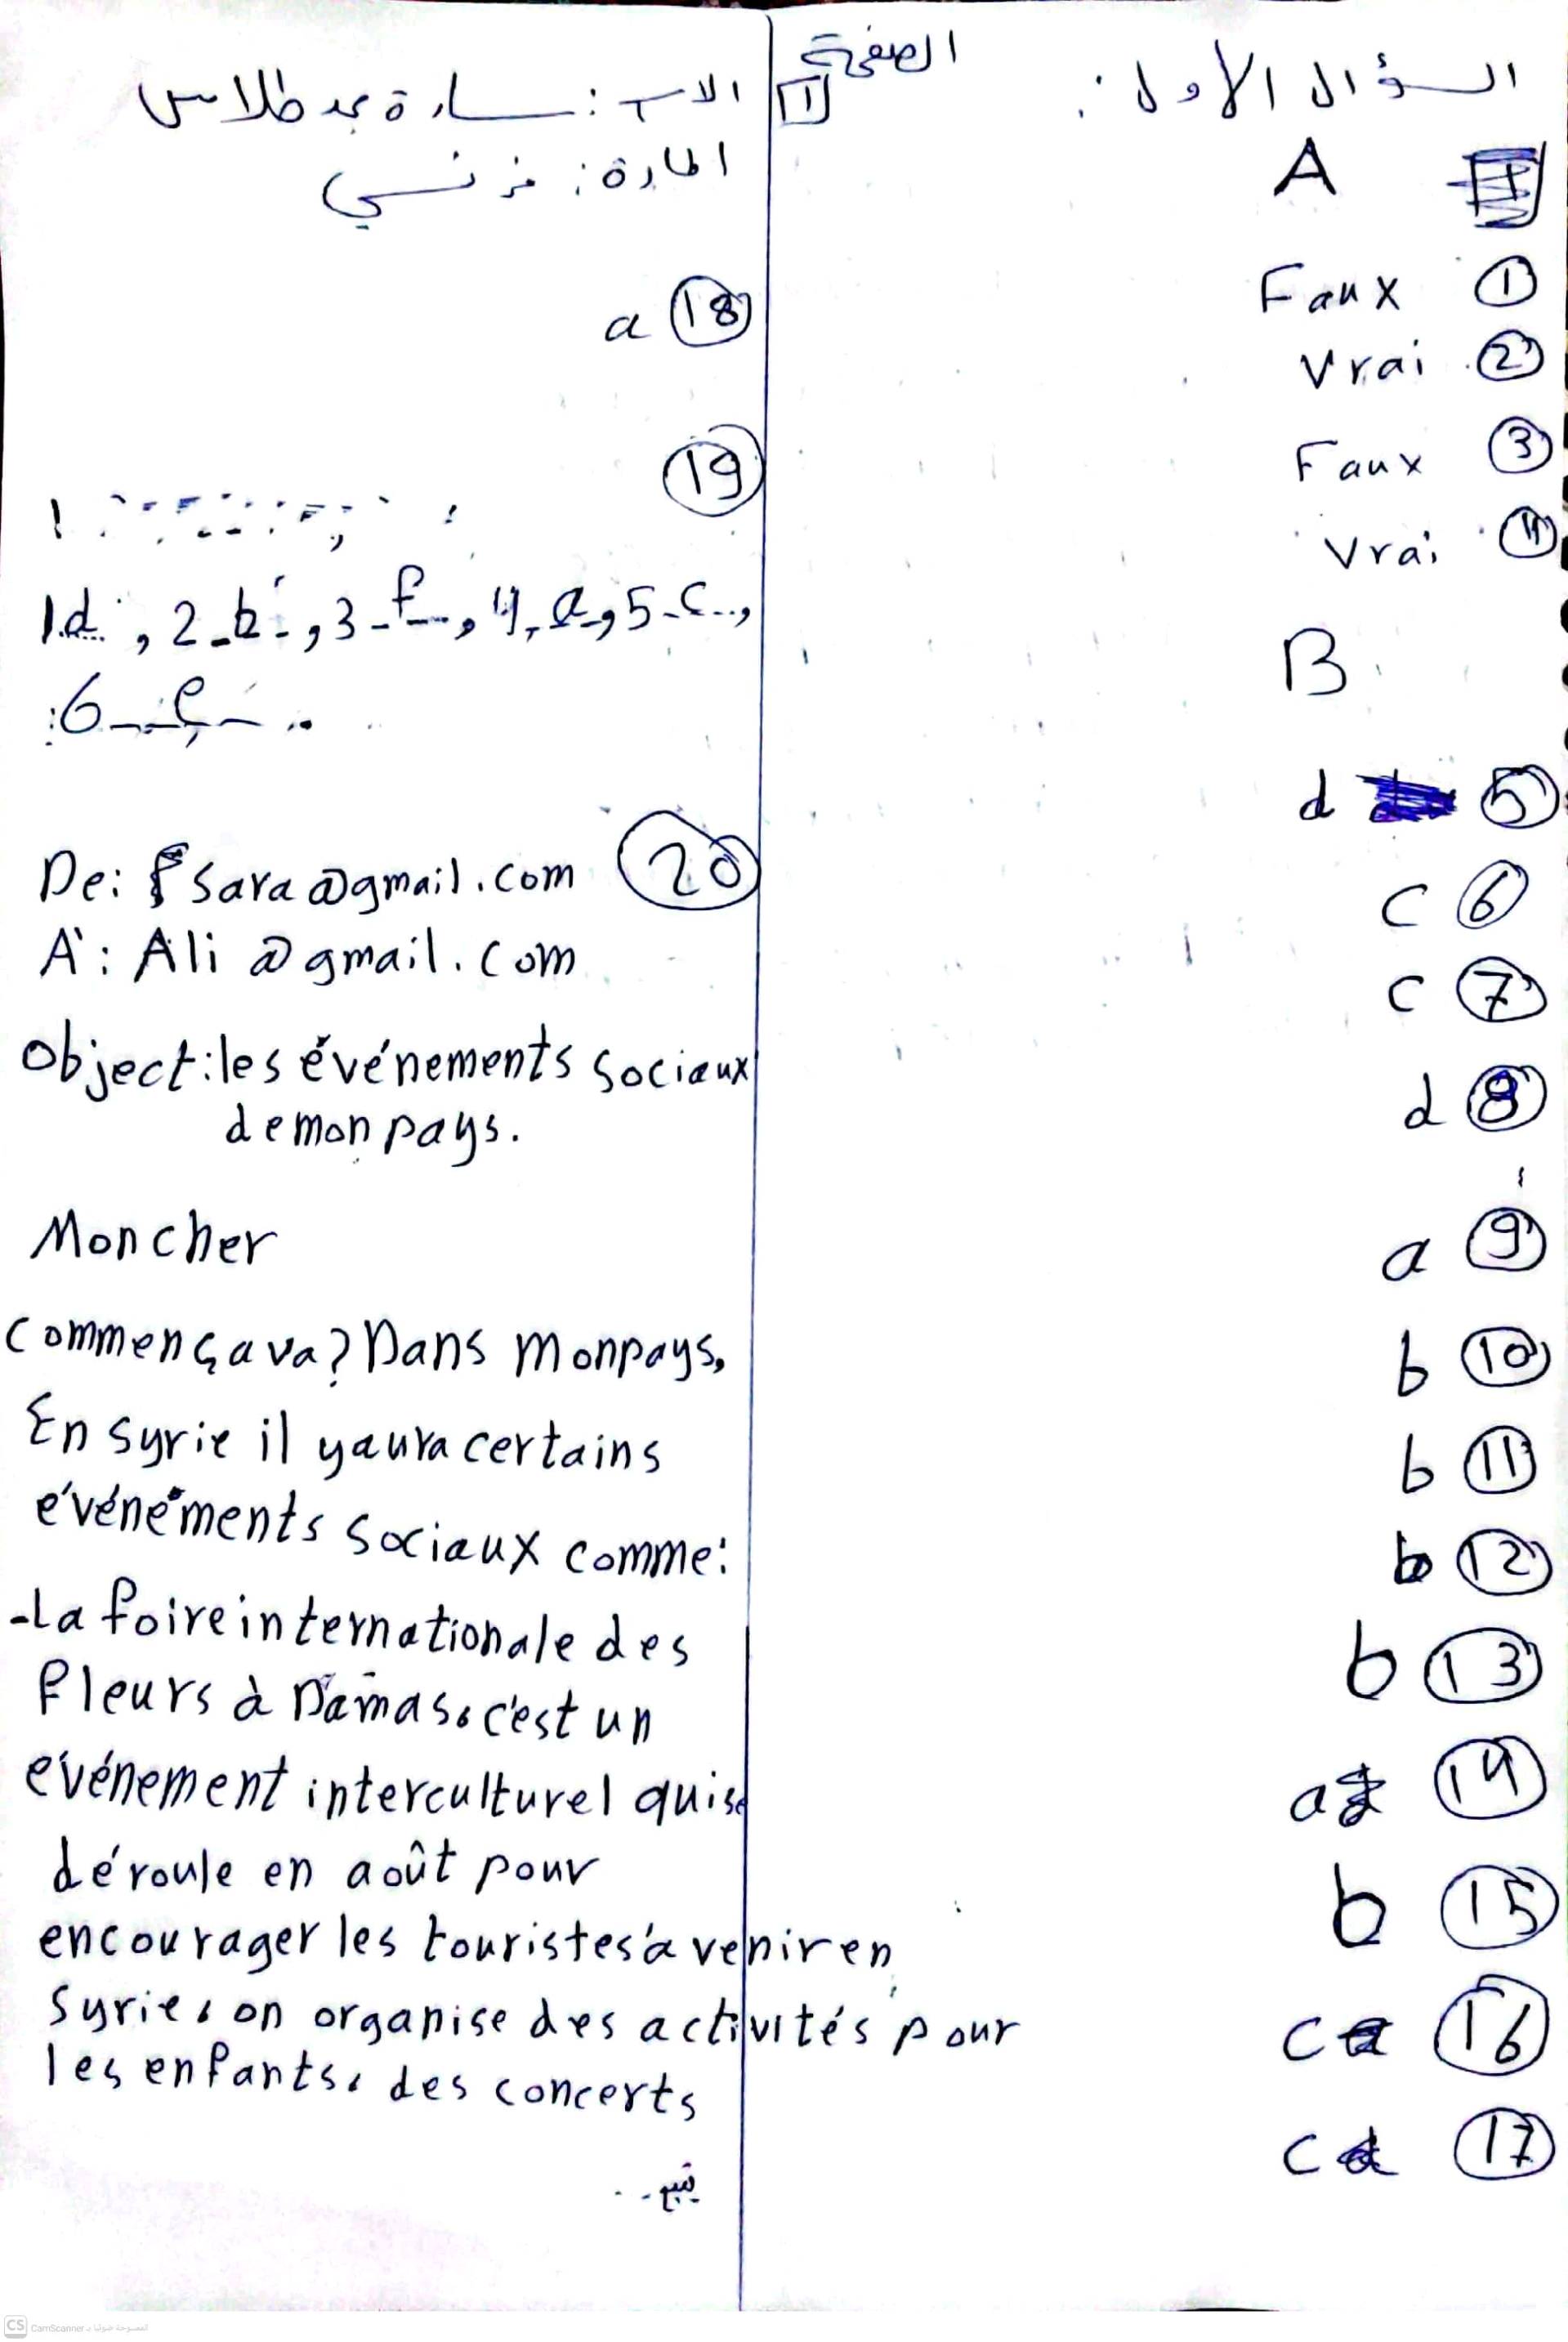 الصفحة
1
السؤال الأول:
A
Faux ①
Vrai ②
Faux ③
Vrai ④
B
d ⑤
c ⑥
c ⑦
d ⑧
a ⑨
b ⑩
b ⑪
b ⑫
b ⑬
a ⑭
b ⑮
c ⑯
c ⑰
الاسم: سارة محمد طلاس
المادة: فرنسي
a ⑱
⑲
1.d, 2-b-, 3-f-, 4-a-, 5-c..,
6--e--..
⑳
De: Sara@gmail.com
À: Ali@gmail.com
Object: les événements sociaux
de mon pays.
Mon cher
Commen ça va? Dans mon pays,
En syrie il y aura certains
événements sociaux comme:
-La foire internationale des
fleurs à Damas, c'est un
événement interculturel qui se
déroule en août pour
encourager les touristes à venir en
Syrie, on organise des activités pour
les enfants, des concerts
يتبع...
CS CamScanner الممسوحة ضوئيا بـ